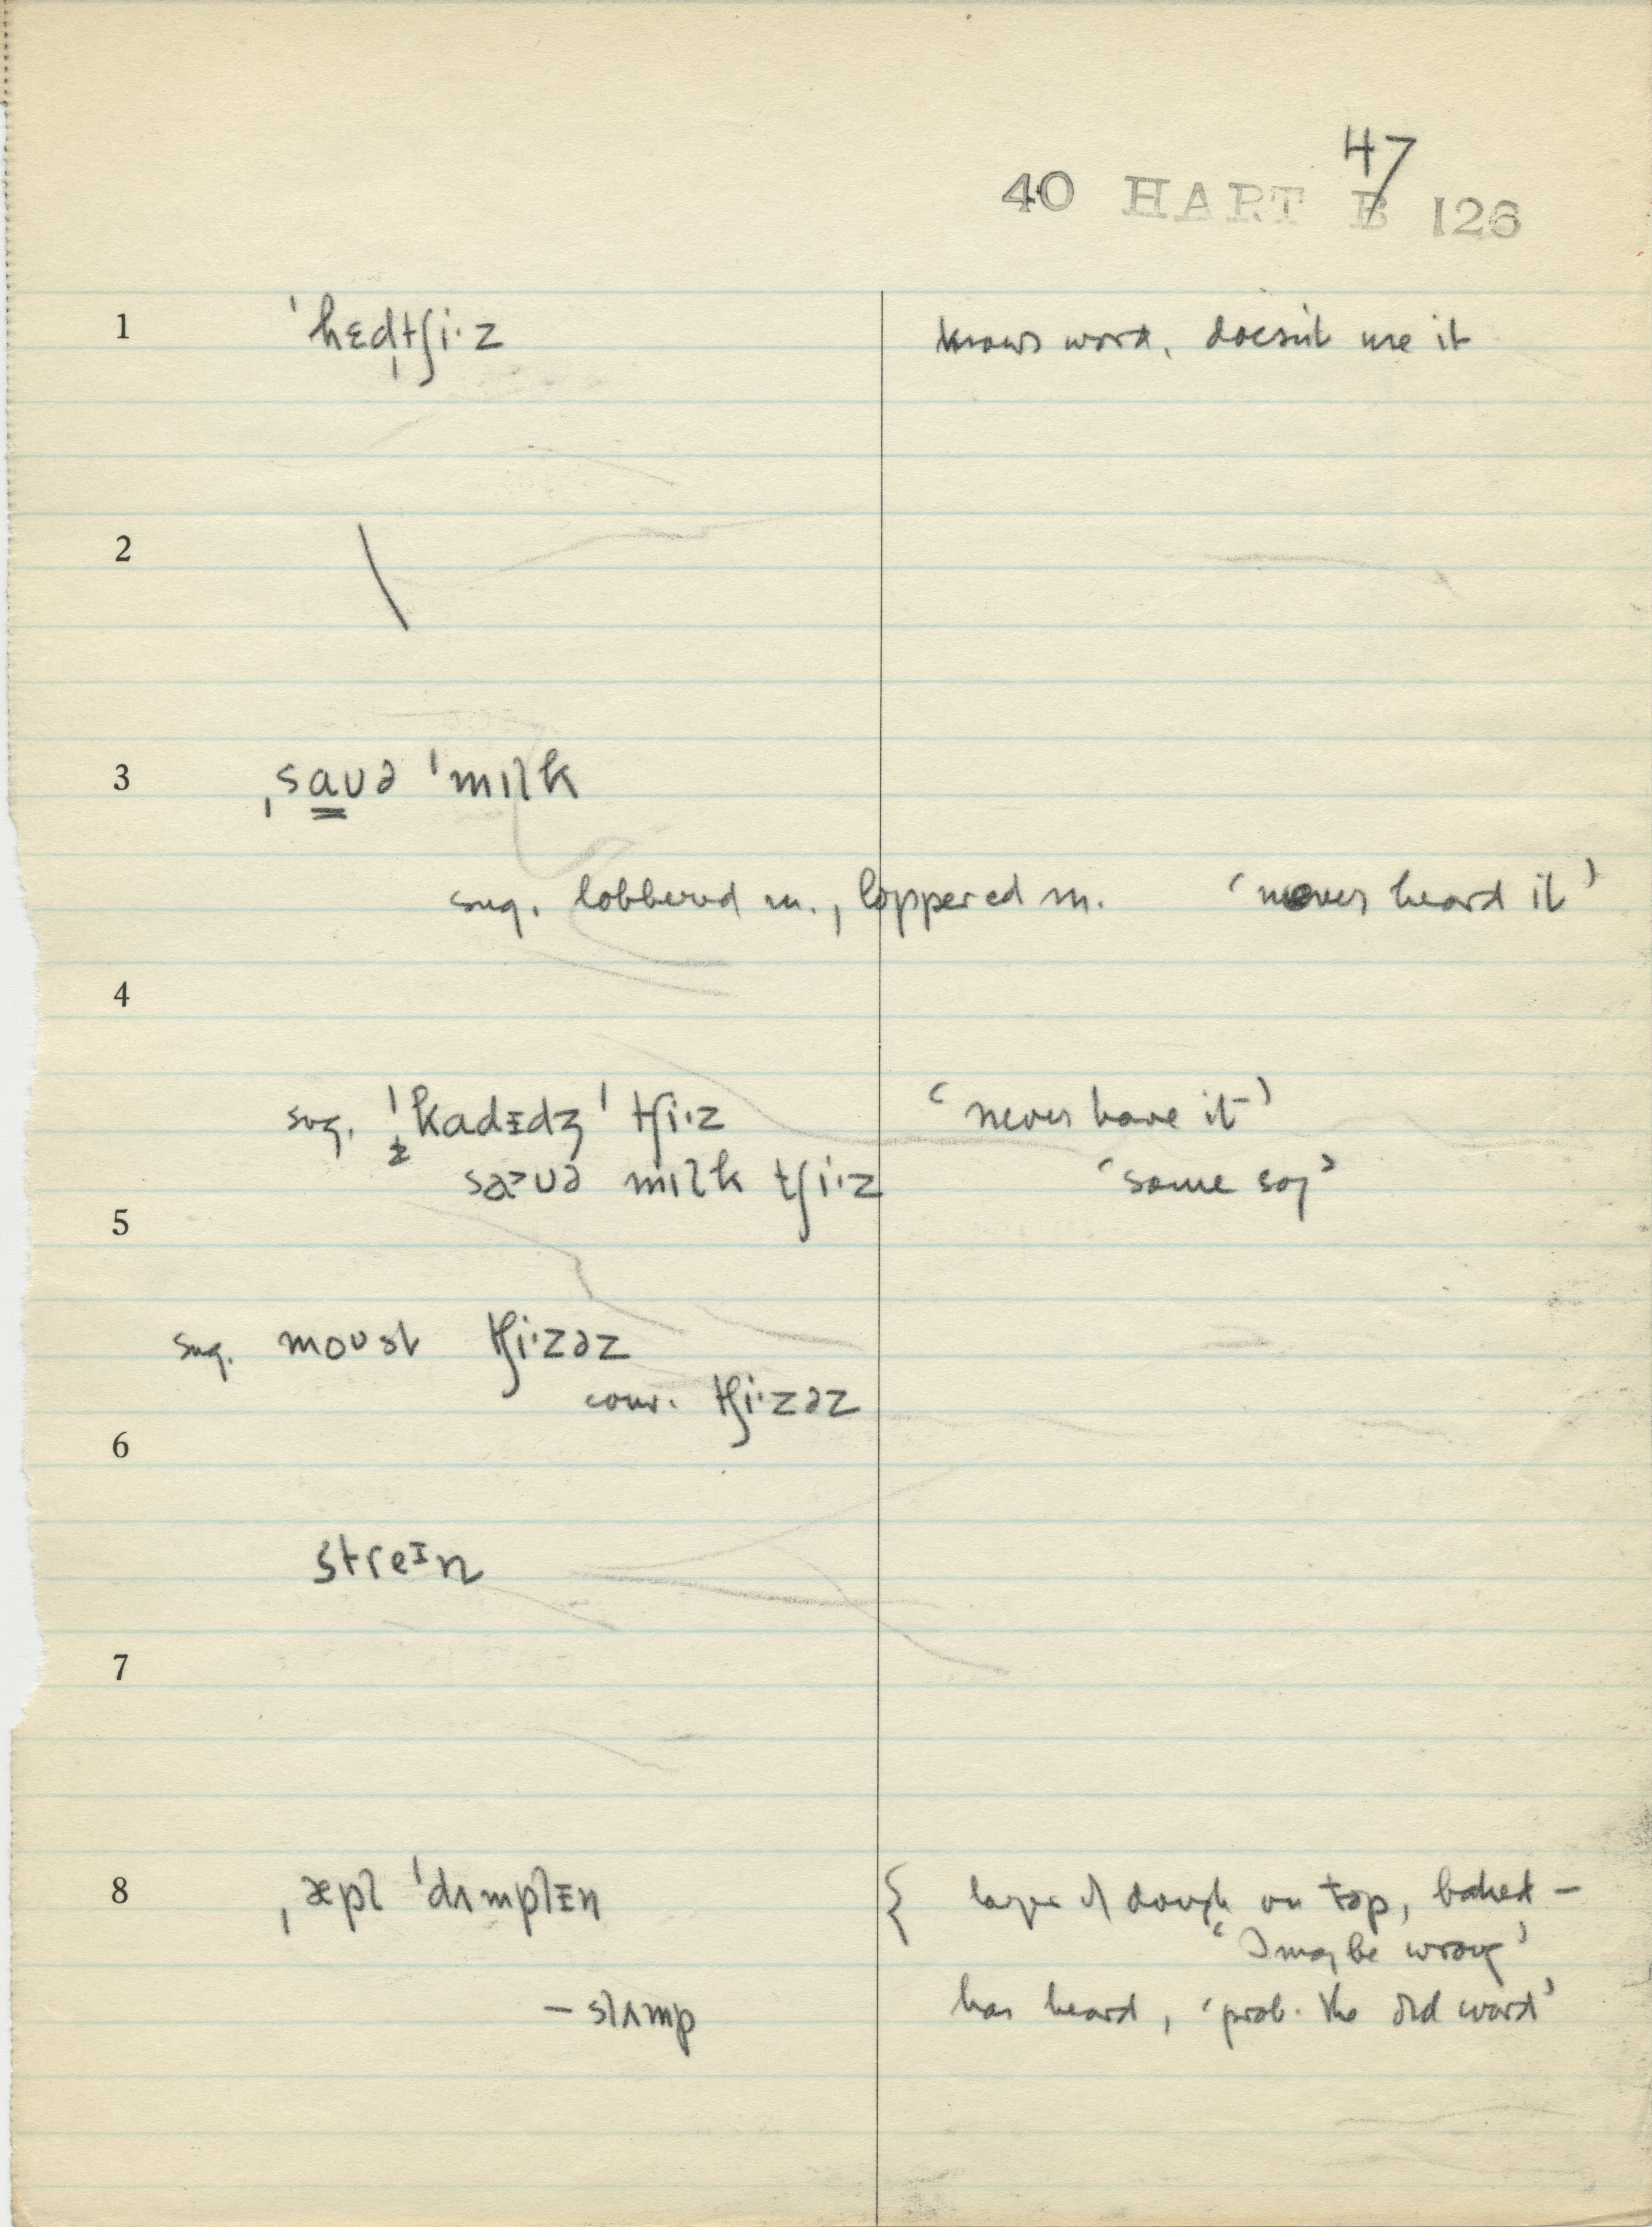 47
40 HART B 126
1 ˈhɛdˌtʃi·z knows word, doesn't use it
2 \
3 ˌsaʊə ˈmɪlk
sug. lobbered m., loppered m. ‘never heard it’
4
sug. ˈkadᵻdʒ ˈtʃi·z ‘never have it’
sa˃ʊə mɪlk tʃi·z ‘some say’
5
sug. moʊst tʃi·zəz
conv. tʃi·zəz
6
streɪn
7
8 ˌæpl ˈdʌmplᵻn { layer of dough on top, baked –
‘I may be wrong’
– slʌmp has heard, ‘prob. the old word’